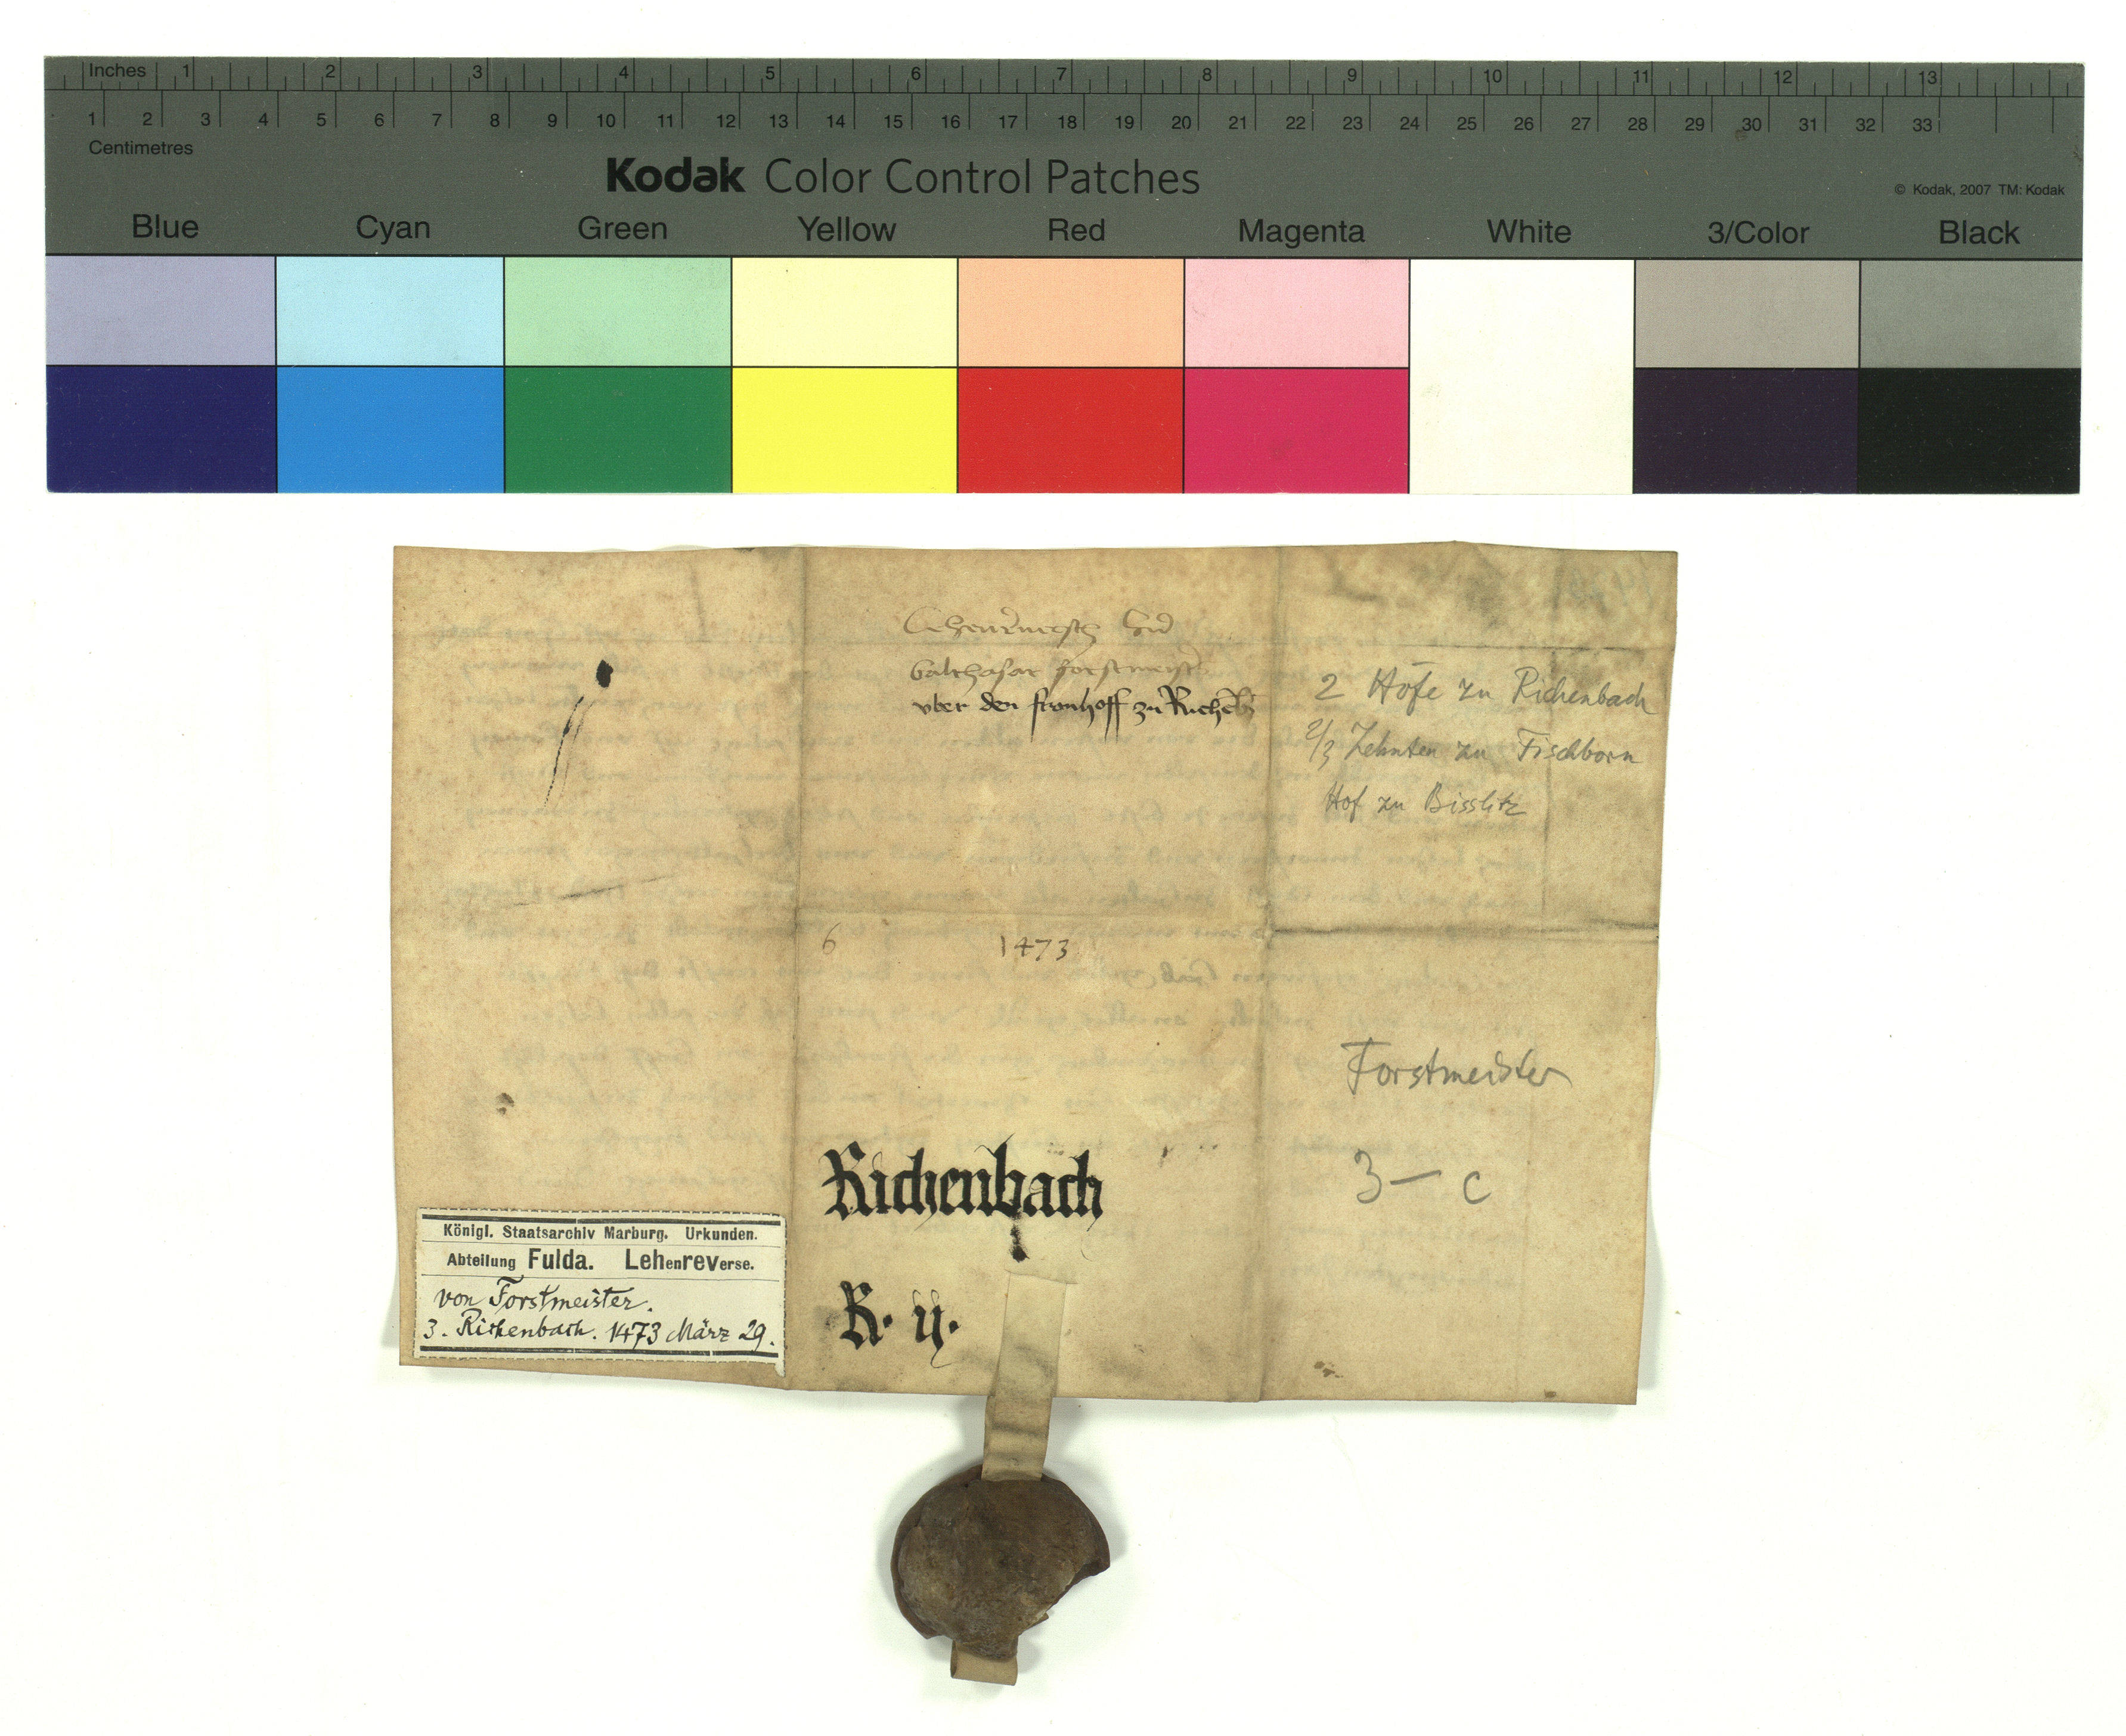 Inches 1 2 3 4 5 6 7 8 9 10 11 12 13
1 2 3 4 5 6 7 8 9 10 11 12 13 14 15 16 17 18 19 20 21 22 23 24 25 26 27 28 29 30 31 32 33
Centimetres
Kodak Color Control Patches
© Kodak, 2007 TM: Kodak
Blue Cyan Green Yellow Red Magenta White 3/Color Black
balthasar forstmeister
vber den fronhoff zu Richenb
2 Höfe zu Richenbach
2/3 Zehnten zu Fischborn
Hof zu Bisslitz
6 1473
Forstmeister
3 — c
Richenbach
R. ij.
Königl. Staatsarchiv Marburg. Urkunden.
Abteilung Fulda. Lehenreverse.
von Forstmeister.
3. Richenbach. 1473 März 29.